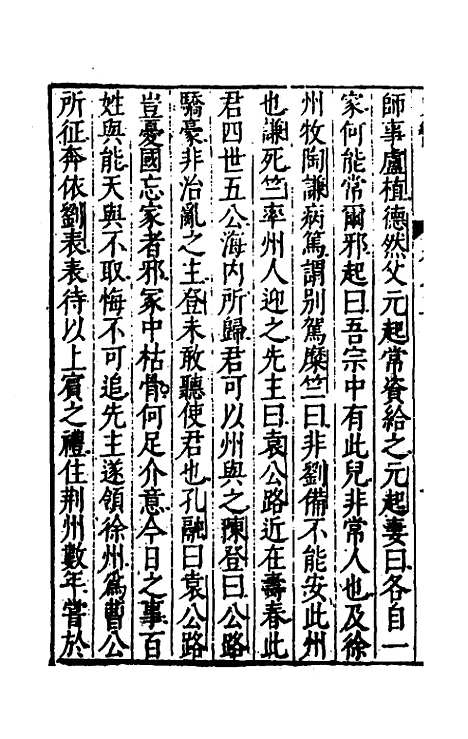 師事盧植德然父元起常資給之元起妻曰各自一
家何能常爾邪起曰吾宗中有此兒非常人也及徐
州牧陶謙病篤謂別駕糜竺曰非劉備不能安此州
也謙死竺率州人迎之先主曰袁公路近在壽春此
君四世五公海内所歸君可以州與之陳登曰公路
驕豪非治亂之主登未敢聽使君也孔融曰袁公路
豈憂國忘家者邪冢中枯骨何足介意今日之事百
姓與能天與不取悔不可追先主遂領徐州爲曹公
所征奔依劉表表待以上賓之禮住荆州數年嘗於